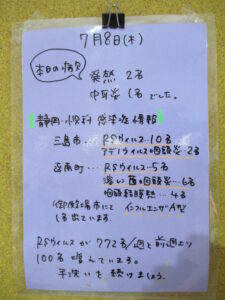 7月8日(木)
本日の病欠
発熱 2名
中耳炎 1名 でした。
静岡・小児科 感染症情報
三島市‥ RSウィルス‥10名
アデノウィルス咽頭炎‥2名
函南町‥‥ RSウィルス‥5名
溶レン菌咽頭炎‥6名
咽頭結膜熱‥‥4名
御殿場市にて インフルエンザA型
1名出ています。
RSウィルスが 772名/週と前週より
100名 増えています。
手洗いを 続けましょう。